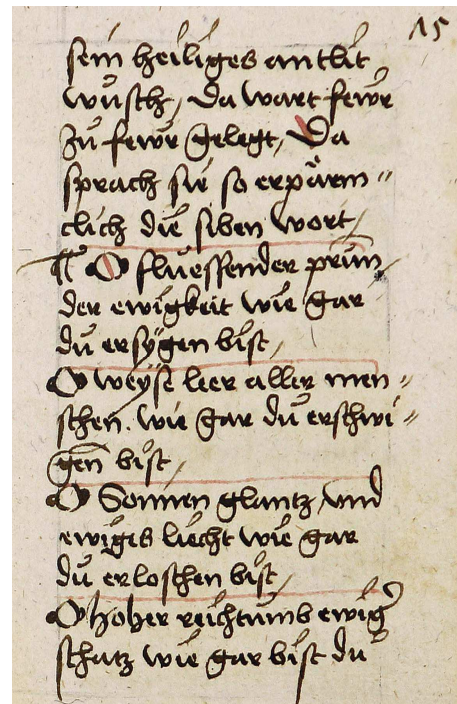 15
sein heiliges antlit
wusch, Da wart fewr
zu fewr gelegt, Da
sprach sie so erpärm "
clich die siben wort,
¶ O fluessender prunn
der ewigkeit wie gar
du ersÿgen bist,
O weyse leer aller men "
schen. wie gar du erschwi "
gen bist,
O Sonnen glantz, vnd
ewiges liecht wie gar
du erloschen bist,
O hoher reichtumb ewig
schatz wie gar bist du